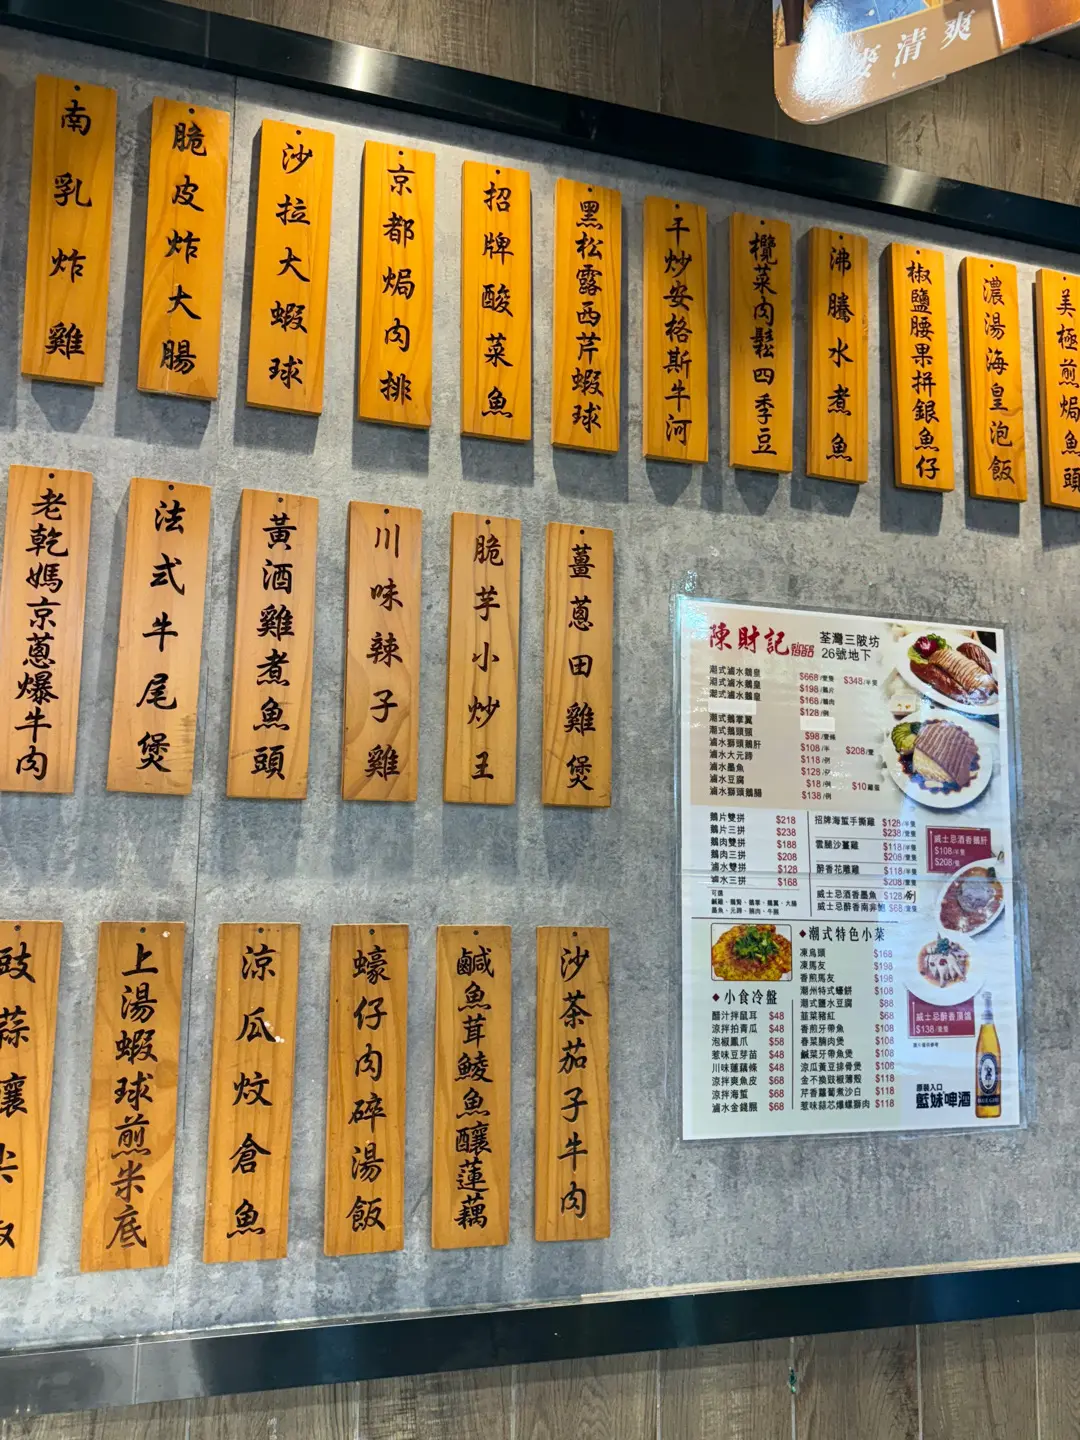 清爽
南乳炸雞
脆皮炸大腸
沙拉大蝦球
京都焗肉排
招牌酸菜魚
黑松露西芹蝦球
干炒安格斯牛河
欖菜肉鬆四季豆
沸騰水煮魚
椒鹽腰果拼銀魚仔
濃湯海皇泡飯
美極煎焗魚頭
老乾媽京蔥爆牛肉
法式牛尾煲
黃酒雞煮魚頭
川味辣子雞
脆芋小炒王
薑蔥田雞煲
豉蒜釀尖椒
上湯蝦球煎米底
涼瓜炆倉魚
蠔仔肉碎湯飯
鹹魚茸鯪魚釀蓮藕
沙茶茄子牛肉
陳財記
荃灣三陂坊
26號地下
潮式滷水鵝皇 $668/壹隻 $348/半隻
潮式滷水鵝皇 $198/鵝片
潮式滷水鵝皇 $168/鵝肉
$128/例
潮式鵝掌翼
潮式鵝頭頸 $98/壹條
滷水獅頭鵝肝 $108/半 $208/壹
滷水大元蹄 $118/例
滷水墨魚 $128/例
滷水豆腐 $18/例 $10雞蛋
滷水獅頭鵝腸 $138/例
鵝片雙拼 $218
鵝片三拼 $238
鵝肉雙拼 $188
鵝肉三拼 $208
滷水雙拼 $128
滷水三拼 $168
可選
墨魚、元蹄、腩肉、牛腱
招牌海蜇手撕雞 $128/半隻
$238/壹隻
雲腿沙薑雞 $118/半隻
$208/壹隻
醉香花雕雞 $118/半隻
$208/壹隻
威士忌酒香墨魚 $128/例
威士忌醉香南非鮑 $68/壹隻
威士忌酒香鵝肝
$108/半隻
$208/隻
潮式特色小菜
凍烏頭 $168
凍馬友 $198
香煎馬友 $198
潮州特式蠔餅 $108
潮式鹽水豆腐 $88
韮菜豬紅 $68
香煎牙帶魚 $108
春菜腩肉煲 $108
鹹菜牙帶魚煲 $108
涼瓜黃豆排骨煲 $108
金不換豉椒薄殼 $118
芹香蘿蔔煮沙白 $118
惹味蒜芯爆螺獅肉 $118
小食冷盤
醋汁拌鼠耳 $48
涼拌拍青瓜 $48
泡椒鳳爪 $58
惹味豆芽苗 $48
川味蓮藕條 $48
涼拌爽魚皮 $68
涼拌海蜇 $68
滷水金錢𦟌 $68
威士忌醉香頂鵝
$138/壹隻
圖片僅供參考
原裝入口
藍妹啤酒